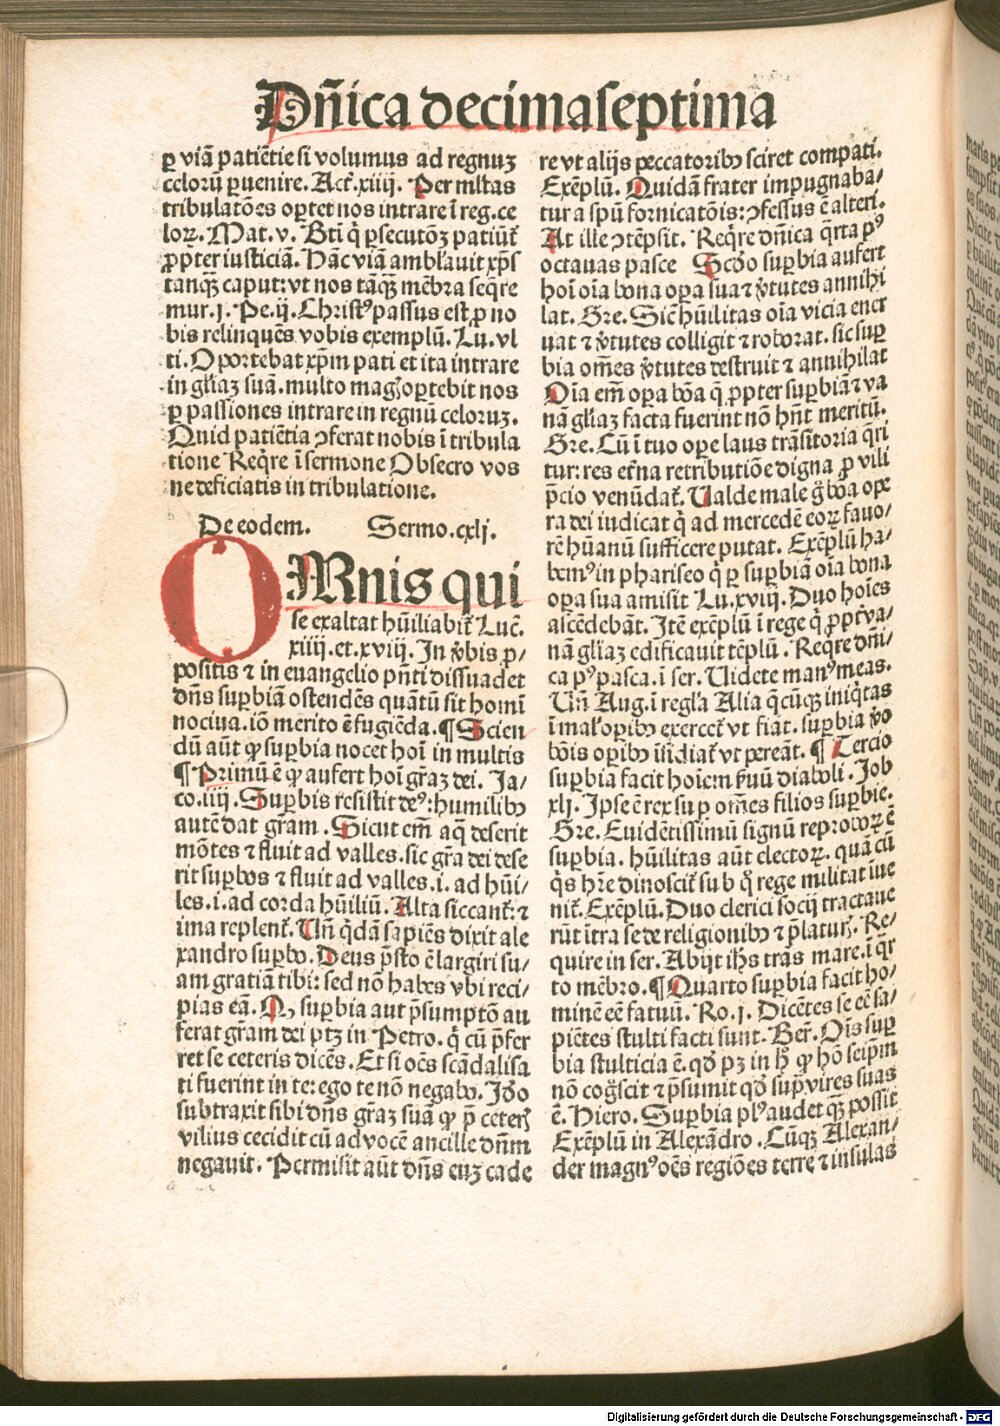 Dn̄ica decimaseptima
ꝑ viā patiētie si volumus ad regnuʒ
celorū ꝑuenire. Act̄. xiiij. Per ml̓tas
tribulatōes oꝑtet nos intrare ī reg. ce
loꝝ. Mat. v. Bt̄i q̇ ꝑsecutōʒ patiūt̄
ꝓpter iusticiā. Hāc viā amblauit xp̄s
tanqʒ caput: vt nos tāqʒ mēbra seq̄re
mur. j. Pe. ij. Christꝰ passus est ꝓ no
bis relinquēs vobis exemplū. Lu. vl
ti. Oportebat xp̄m pati et ita intrare
in gl̓iaʒ suā. multo magꝭ oꝑtebit nos
ꝑ passiones intrare in regnū celoruʒ.
Quid patiētia ꝯferat nobis ī tribula
tione Req̄re ī sermone Obsecro vos
ne deficiatis in tribulatione.
De eodem. Sermo. cxlj.
OMnis qui
se exaltat hūiliabit̄ Luc̄.
xiiij. et. xviij. In v̓bis p̄-
positis ⁊ in euangelio p̄nti dissuadet
dn̄s suꝑbiā ostendēs quātū sit homī
nociua. iō merito ē fugiēda. ¶ Scien
dū aūt ꝙ suꝑbia nocet hoī in multis
¶ Primū ē ꝙ aufert hoī gr̄aʒ dei. Ja-
co. iiij. Suꝑbis resistit deꝰ: humilibꝰ
autē dat gr̄am. Sicut em̄ aq̄ deserit
mōtes ⁊ fluit ad valles. sic gr̄a dei dese
rit suꝑbos ⁊ fluit ad valles. i. ad hūi-
les. i. ad corda hūiliū. Alta siccant̄: ⁊
ima replent̄. Un̄ q̇dā sapiēs dixit ale
xandro suꝑbo. Deus p̄sto ē largiri su-
am gratiā tibi: sed nō habes vbi reci-
pias eā. Qꝫ suꝑbia aut p̄sumptō au
ferat gr̄am dei ptꝫ in Petro. q̇ cū p̄fer
ret se ceteris dicēs. Et si oēs scādalisa
ti fuerint in te: ego te nō negabo. Jdo
subtraxit sibi dn̄s gr̄aʒ suā ꝙ p̄ ceterꝭ
vilius cecidit cū ad vocē ancille dn̄m
negauit. Permisit aūt dn̄s euʒ cade
re vt alijs peccatoribꝰ sciret compati.
Exēplū. Quidā frater impugnaba-
tur a spū fornicatōis: ꝯfessus ē alteri.
At ille ꝯtēpsit. Req̄re dn̄ica q̄rta pꝰ
octauas pasce Scdo suꝑbia aufert
hoī oīa bona oꝑa sua ⁊ v̓tutes annihi
lat. Gre. Sic̄ hūilitas oīa vicia ener
uat ⁊ v̓tutes colligit ⁊ roborat. sic suꝑ
bia om̄es v̓tutes destruit ⁊ annihilat
Oīa em̄ oꝑa bōa q̄ ꝓpter suꝑbiā ⁊ va
nā gl̓iaʒ facta fuerint nō hn̄t meritū.
Gre. Cū ī tuo oꝑe laus trāsitoria q̄ri
tur: res et̓na retributiōe digna ꝓ vili
p̄cio venūdat̄. Ualde male g̊ bōa oꝑe
ra dei iudicat q̇ ad mercedē eoꝝ fauo-
rē hūanū sufficere putat. Exēplū ha-
bemꝰ in phariseo q̇ ꝑ suꝑbiā oīa bona
oꝑa sua amisit Lu. xviij. Duo hoīes
ascēdebāt. Jtē exēplū ī rege q̇ ꝓpt̓ va-
nā gl̓iaʒ edificauit tēplū. Req̄re dn̄i-
ca pꝰ pasca. ī ser. Uidete manꝰ meas.
Un̄ Aug. ī regl̓a Alia q̄cūqʒ iniq̇tas
ī mal̓ oꝑibꝰ exercet̄ vt fiāt. suꝑbia v̓o
bōis oꝑibꝰ īsidiat̄ vt pereāt. ¶ Tercio
suꝑbia facit hoīem s̓uū diaboli. Job
xlj. Jpse ē rex suꝑ om̄es filios suꝑbie.
Gre. Euidētissimū signū reproboꝝ ē
suꝑbia. hūilitas aūt electoꝝ. quā cū
q̇s hr̄e dinoscit̄ sub q̇ rege militat īue
nit̄. Exēplū. Duo clerici socij tractaue
rūt īt̓ra se de religionibꝰ ⁊ p̄laturꝭ. Re-
quire in ser. Abijt ih̄s trās mare. ī q̄r
to mēbro. ¶ Quarto suꝑbia facit ho-
minē eē fatuū. Ro. j. Dicētes se eē sa-
piētes stulti facti sunt. Ber̄. Oīs suꝑ
bia stulticia ē. qd̓ pꝫ in hꝭ ꝙ hō seip̄m
nō cog̓scit ⁊ p̄sumit qd̓ supͣ vires suas
ē. Hiero. Suꝑbia plꝰ audet qʒ possit
Exēplū in Alexādro. Cūqʒ Alexan-
der magnꝰ oēs regiōes terre ⁊ insulas
Digitalisierung gefördert durch die Deutsche Forschungsgemeinschaft - DFG